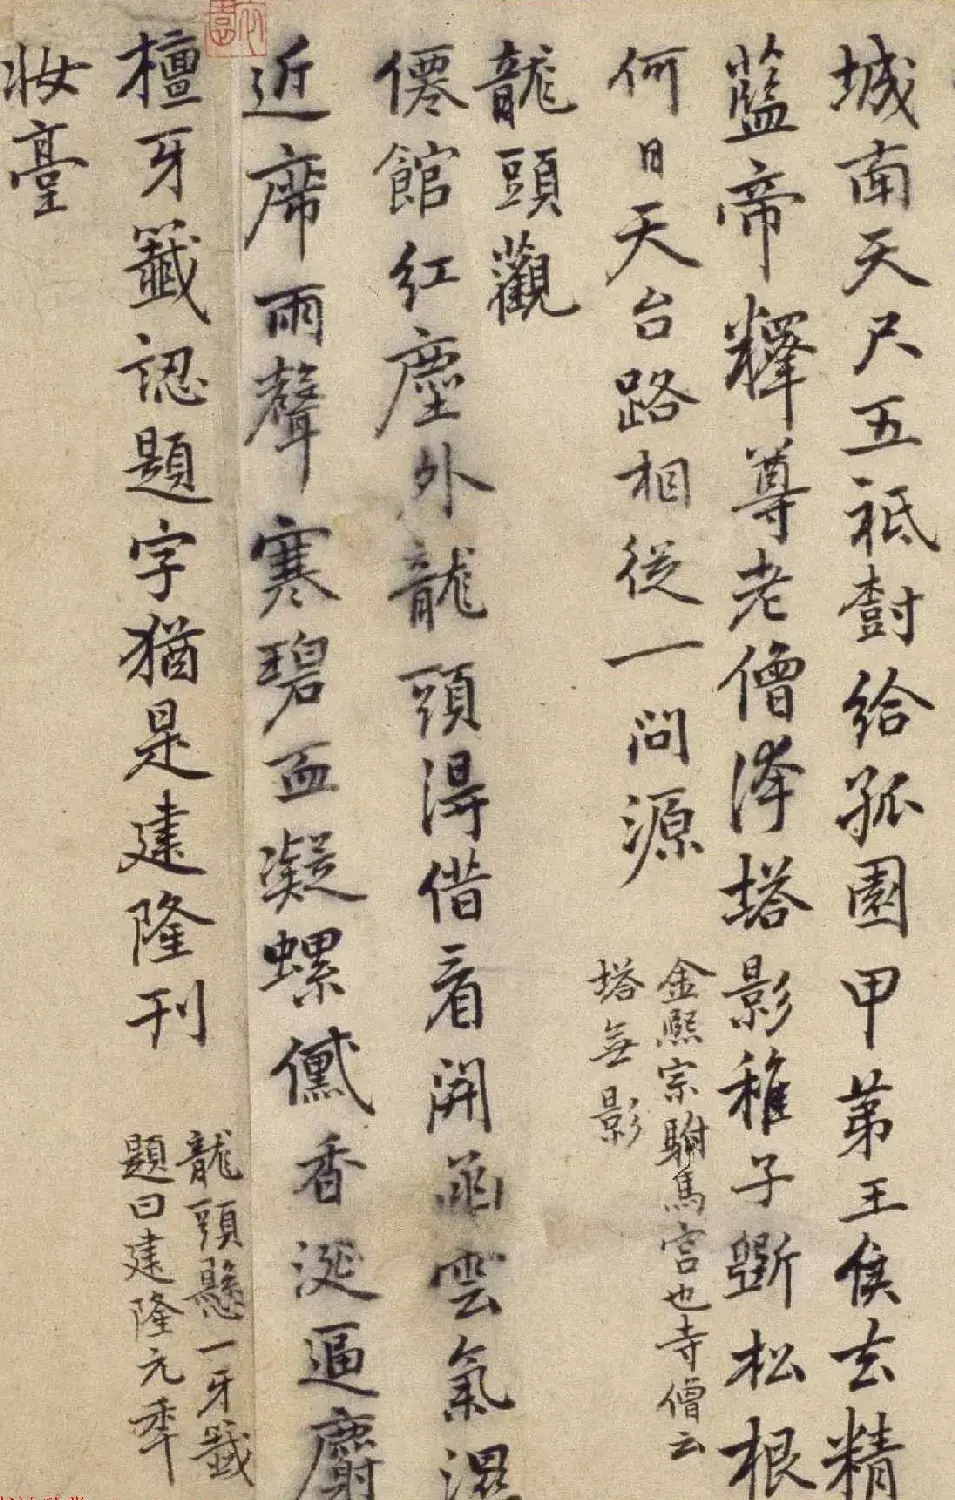 城南天尺五祗樹給孤園甲第王侯去精
藍帝釋尊老僧浄塔影稚子斸松根
何日天台路相從一問源
金熙宗駙馬宮也寺僧云
塔無影
龍頭觀
僊館紅塵外龍頭淂借看開函雲氣濕
近席雨聲寒碧血凝螺僟香涎逼麝
檀牙籤認題字猶是建隆刊
龍頭懸一牙籤
題曰建隆元年
妝臺